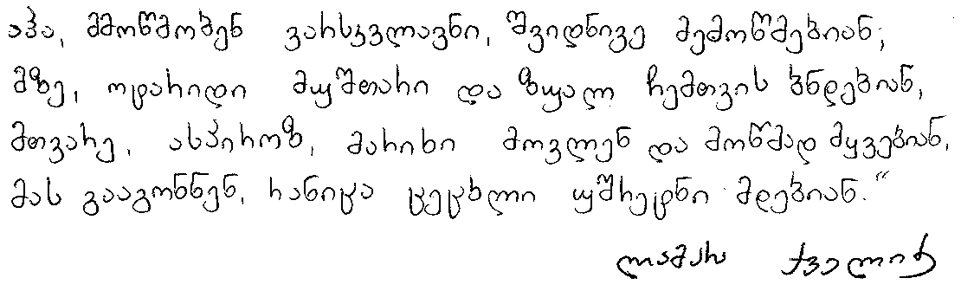 აჰა, მმოწმობენ ვარსკვლავნი, შვიდნივე მემოწმებიან;
მზე, ოტარიდი მუშთარი და ზუალ ჩემთვის ბნდებიან,
მთვარე, ასპიროზ, მარიხი მოვლენ და მოწმად მყვებიან,
მას გააგონნენ, რანიცა ცეცხლი უშრეტნი მდებიან.“
ლამარა